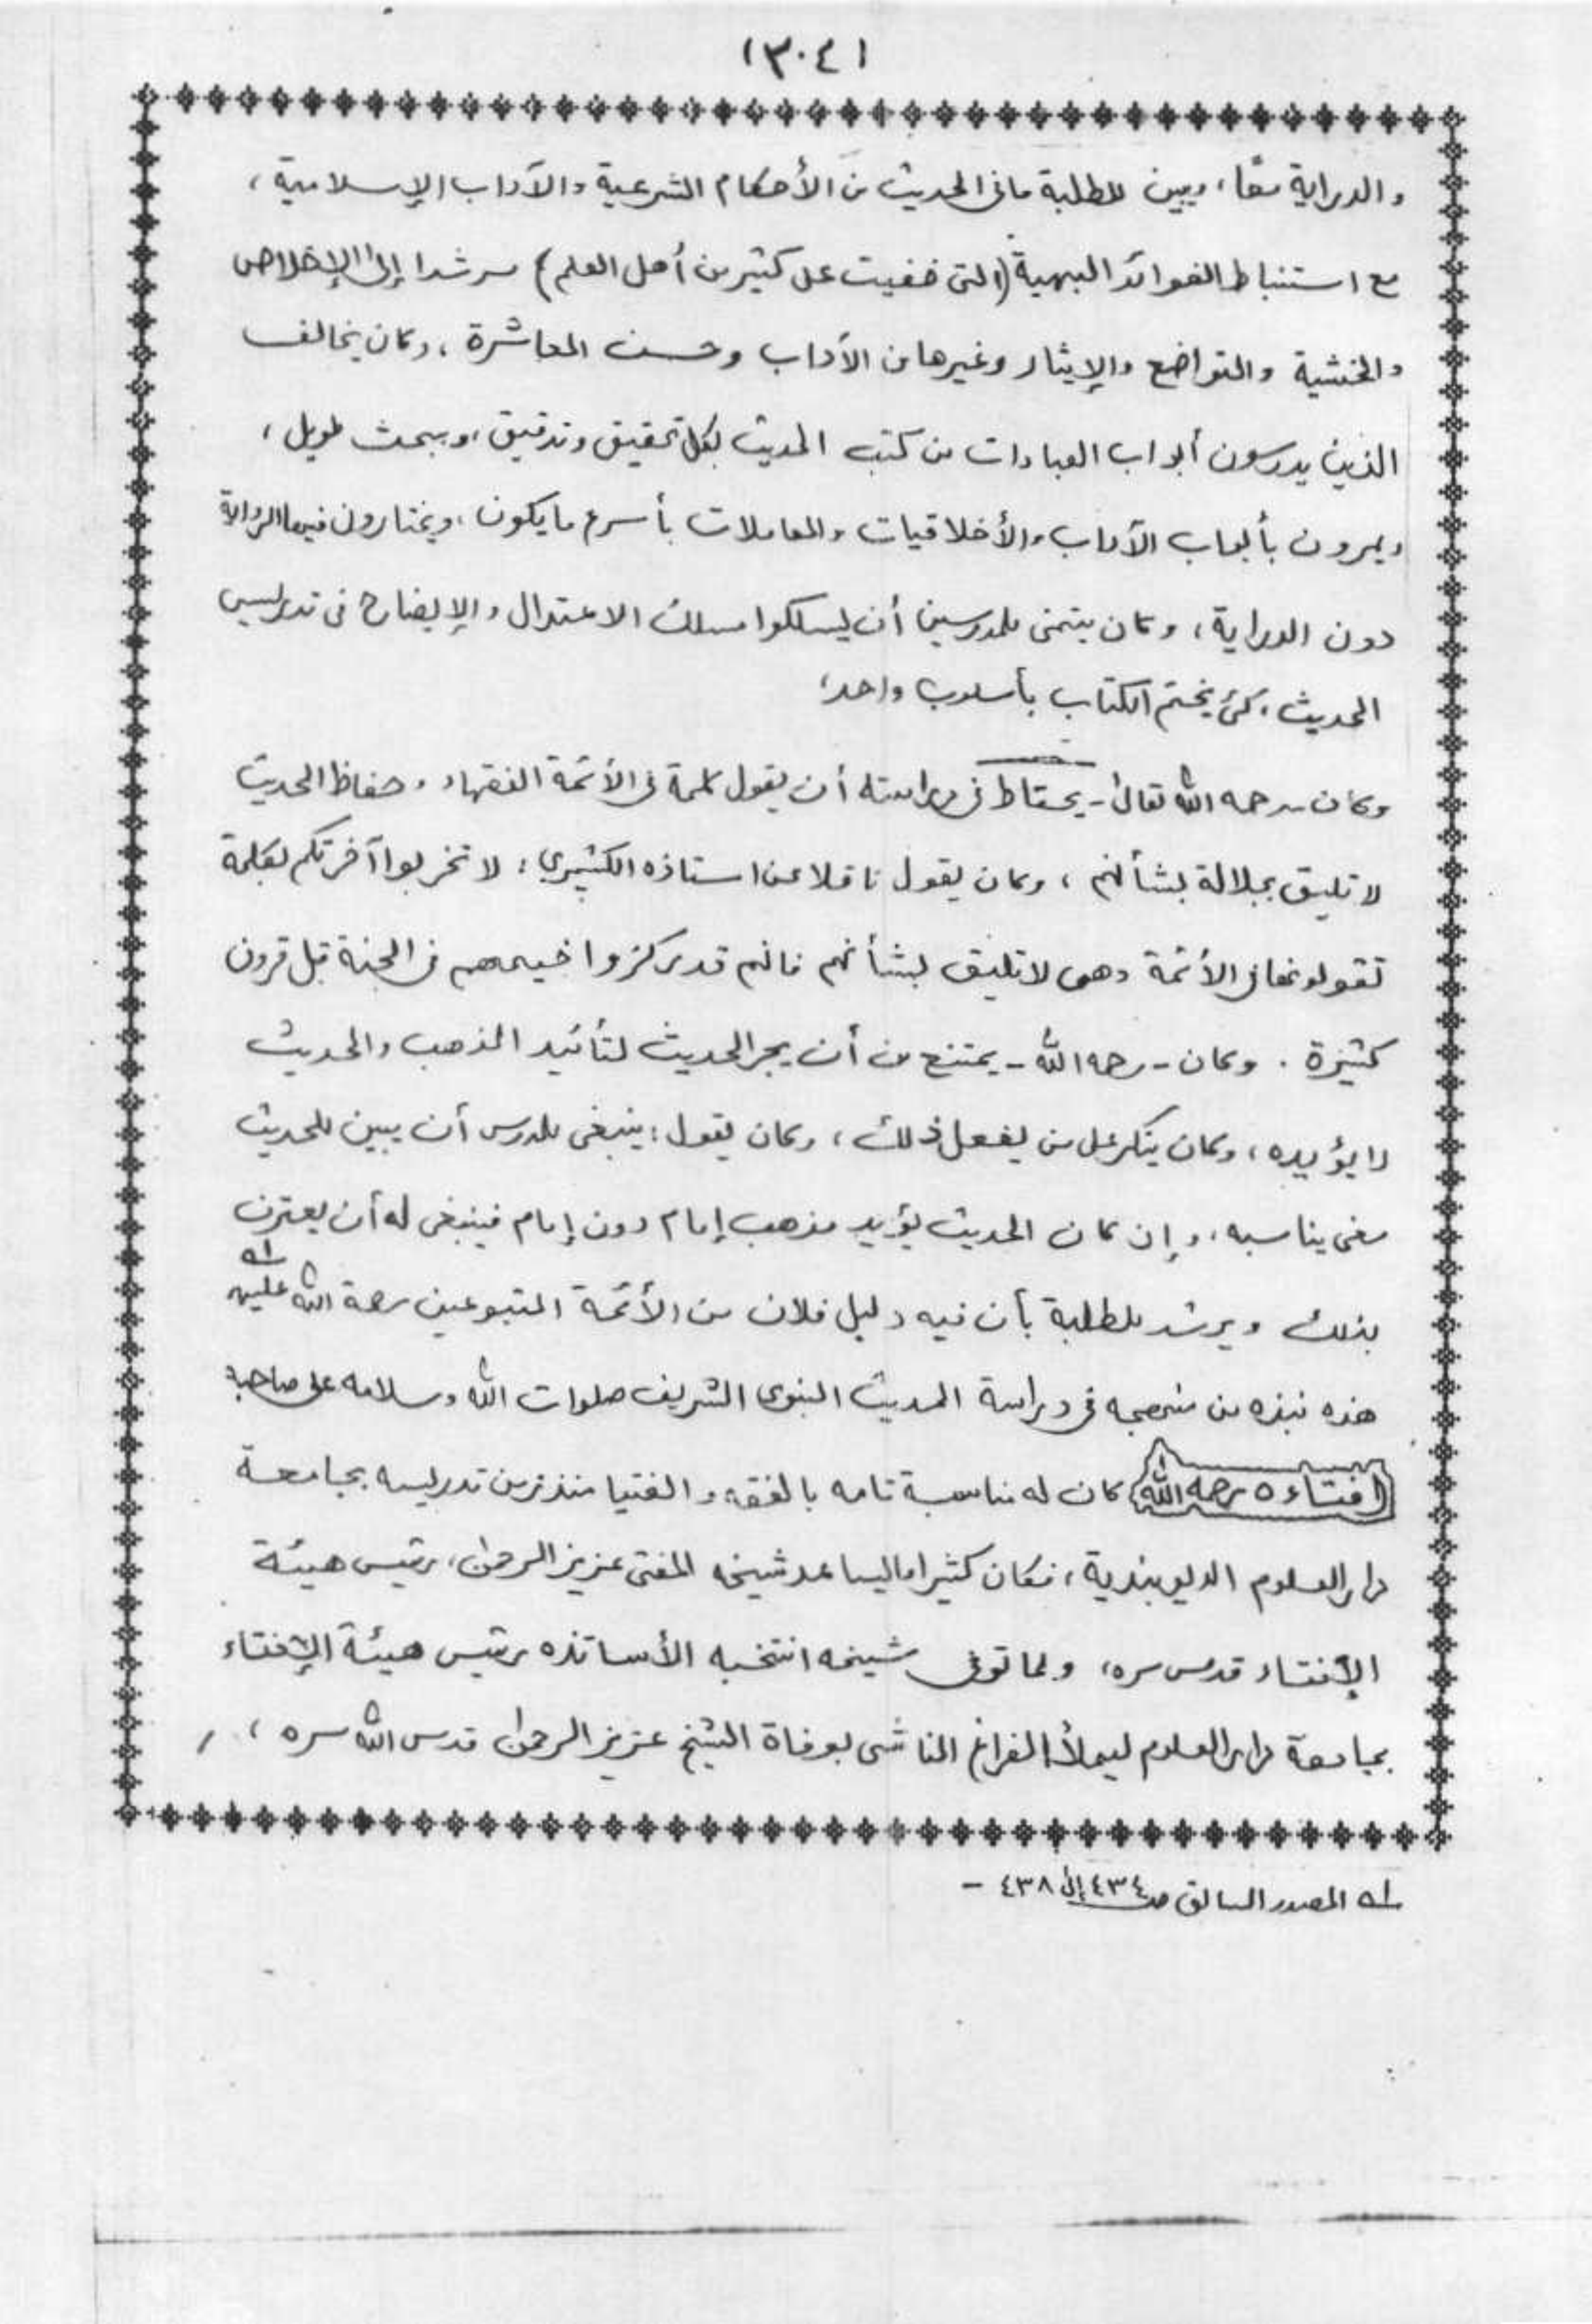 (٣٠٤)
والدراية معًا، ويبين للطلبة ما فى الحديث من الأحكام الشرعية والآداب الإسلامية،
مع استنباط الفوائد البهية (التى خفيت على كثير من أهل العلم) مرشدا إلى الإخلاص
والخشية والتواضع والإيثار وغيرها من الآداب وحسن المعاشرة، وكان يخالف
الذين يدرسون أبواب العبادات من كتب الحديث بكل تحقيق وتدقيق، وببحث طويل،
ويمرون بأبواب الآداب والأخلاقيات والمعاملات بأسرع ما يكون، ويختارون فيها الرواية
دون الدراية، وكان يتمنى للمدرسين أن يسلكوا مسلك الاعتدال والإيضاح فى تدريس
الحديث، كئ يختم الكتاب بأسلوب واحد؛
وكان ـ رحمه الله تعالى ـ يحتاط فى دراسته أن يقول كلمة فى الأئمة الفقهاء، وحفاظ الحديث
لا تليق بجلالة بشأنهم، وكان يقول ناقلا عن استاذه الكشميرى: لا تخربوا آخرتكم بكلمة
تقولونها فى الأئمة وهى لا تليق بشأنهم فانهم قد ركزوا خيمهم فى الجنة قبل قرون
كثيرة. وكان ـ رحمه الله ـ يمتنع من أن يجر الحديث لتأئيد المذهب والحديث
لا يؤيده، وكان ينكر على من يفعل ذلك، وكان يقول: ينبغى للمدرس أن يبين للحديث
معنى يناسبه، وإن كان الحديث يؤيد مذهب إمام دون إمام فينبغى له أن يعترف
بذلك ويرشد للطلبة بأن فيه دليل فلان من الأئمة المتبوعين رحمة الله عليهم ١ه
هذه نبذه من منهجه فى دراسة الحديث النبوى الشريف صلوات الله وسلامه على صاحبه
افتاءه رحمه الله كان له مناسبة تامه بالفقه والفتيا منذ زمن تدريسه بجامعة
دار العلوم الديوبندية، فكان كثيرا ما يساعد شيخه المفتى عزيز الرحمن، رئيس هيئة
الإفتاء قدس سره، ولما توفى شيخه انتخبه الأساتذه رئيس هيئة الإفتاء
بجامعة دار العلوم ليملأ الفراغ الناشى بوفاة الشيخ عزيز الرحمن قدس الله سره،
١ه المصدر السابق صـ ٤٣٤ إلى ٤٣٨ ـ